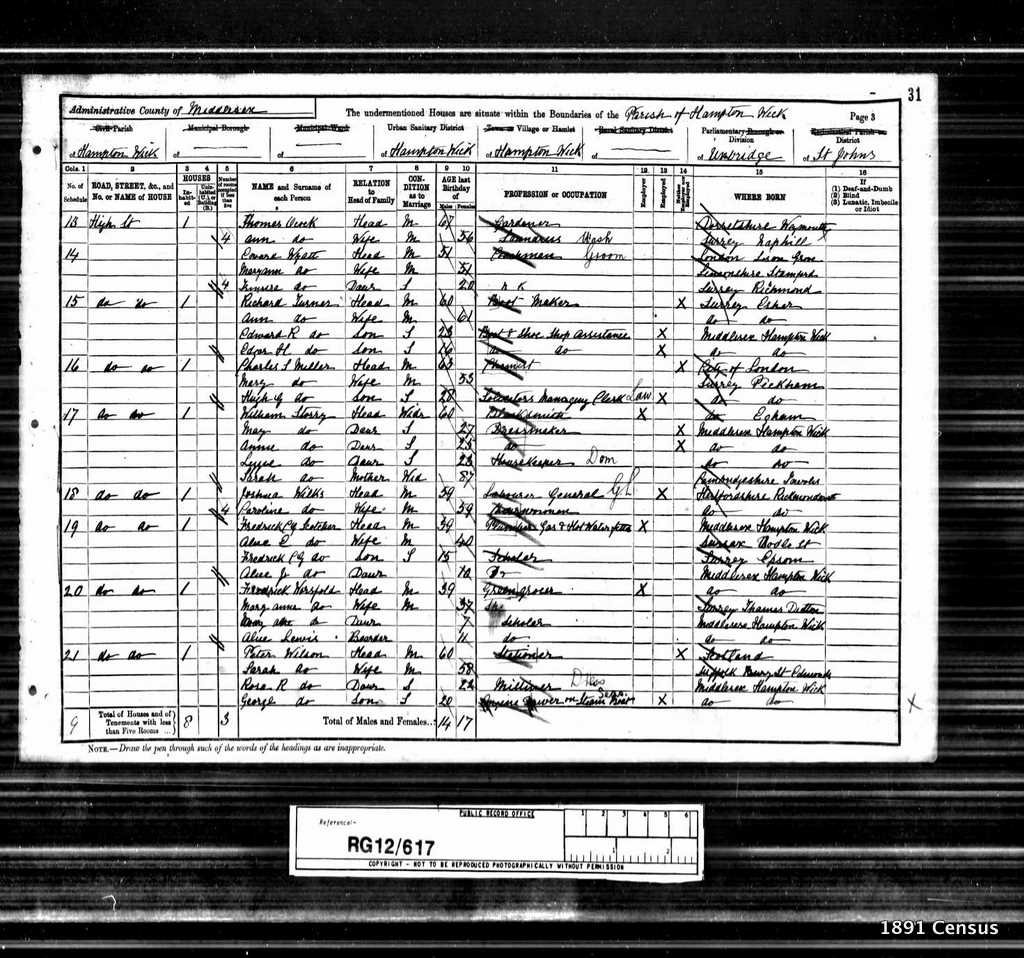 31
Administrative County of Middlesex
The undermentioned Houses are situate within the Boundaries of the Parish of Hampton Wick
Page 3
Civil Parish
Municipal Borough
Municipal Ward
Urban Sanitary District
Town or Village or Hamlet
Rural Sanitary District
Parliamentary Borough or Division
Ecclesiastical Parish or District
of Hampton Wick
of
of
of Hampton Wick
of Hampton Wick
of
of Uxbridge
of St Johns
Cols. 1 2 3 4 5 6 7 8 9 10 11 12 13 14 15 16
No. of Schedule
ROAD, STREET, &c., and No. or NAME of HOUSE
HOUSES
Inhabited
Uninhabited (U.) or Building (B.)
Number of rooms occupied if less than five
NAME and Surname of each Person
RELATION to Head of Family
CONDITION as to Marriage
AGE last Birthday of
Males Females
PROFESSION or OCCUPATION
Employer
Employed
Neither Employer nor Employed
WHERE BORN
If
(1) Deaf-and-Dumb
(2) Blind
(3) Lunatic, Imbecile or Idiot
13 High St 1 Thomas Head M 67 Gardener Dorsetshire Weymouth
4 Ann do Wife M 56 Laundress Wash Surrey
14 Edward Wyatt Head M 51 Coachman Groom London
Maryann do Wife M 51
4 do Daur S 20 Surrey Richmond
15 do do 1 Richard Turner Head M 60 Boot Maker X Surrey Esher
Ann do Wife M 61 do do
Edward R do Son S 23 Boot & Shoe Shop Assistance X Middlesex Hampton Wick
Edgar H do Son S 16 do do X do do
16 do do 1 Charles S Miller Head M 63 Chemist X City of London
Mary do Wife M 53 Surrey Peckham
Hugh G do Son S 28 Solicitors Managing Clerk Law X do do
17 do do 1 William Storry Head Widr 60 Blacksmith X do Egham
May do Daur S 27 Dressmaker X Middlesex Hampton Wick
Annie do Daur S 25 do X do do
do Daur S 23 Housekeeper Dom do do
Sarah do Mother Wid 87
18 do do 1 Joshua Wilks Head M 59 Labourer General G L X Hertfordshire
4 Caroline do Wife M 59 do do
19 do do 1 Fredrick Head M 39 Plumber Gas & Hot Water fitter X Middlesex Hampton Wick
Alice E do Wife M 40 Sussex
Fredrick do Son S 15 Scholar Surrey Epsom
Alice J do Daur 12 Do Middlesex Hampton Wick
20 do do 1 Fredrick Worsfold Head M 39 Greengrocer X do do
Mary Anne do Wife M 37 Surrey Thames Ditton
do Daur 7 Scholar Middlesex Hampton Wick
Alice Lewis Boarder 11 do do do
21 do do 1 Peter Wilson Head M 60 Stationer X Scotland
Sarah do Wife M 58 Suffolk Bury St Edmunds
Rosa R do Daur S 22 Milliner Middlesex Hampton Wick
George do Son S 20 Engine Driver on Steam Boat X do do
9
Total of Houses and of Tenements with less than Five Rooms ...
8 3
Total of Males and Females... 14 17
NOTE.—Draw the pen through such of the words of the headings as are inappropriate.
PUBLIC RECORD OFFICE
Reference:-
RG12/617
1 2 3 4 5 6
1 2
COPYRIGHT - NOT TO BE REPRODUCED PHOTOGRAPHICALLY WITHOUT PERMISSION
1891 Census